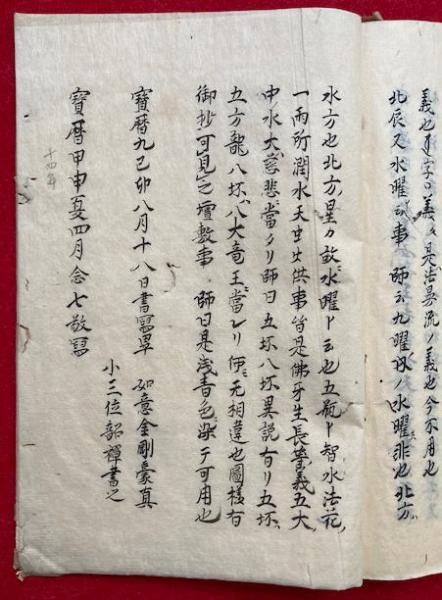 義也 字ノ義ハ是法界流ノ義也今不用也
北辰又水曜故事 師云九曜ノ水曜非也北方
水方也北方星カ故水曜ト云也五瓶ト智水法花
一雨所潤水天虫供事皆是佛牙生長養義五大
中水大慈悲當タリ師曰五坏八坏異説有リ五坏
五方龍八坏八大竜王當レリ 元相違也圖様有
御抄可見之壇敷事 師曰是浅青色染テ可用也
寳暦九己卯八月十八日書寫畢 如意金剛豪真
小三位韶禅書之
寳暦甲申夏四月念七敬寫
十四年